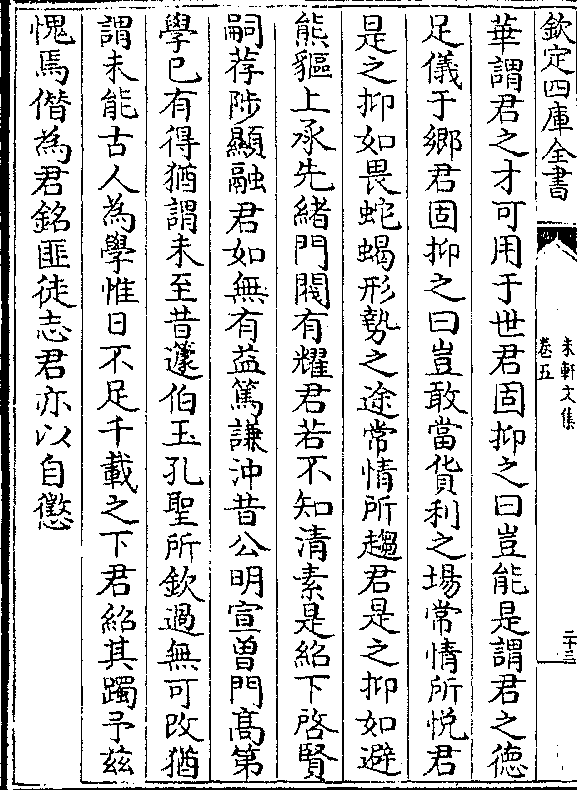 欽定四庫全書
耒軒文集
卷五
二十三
華謂君之才可用于世君固抑之曰豈能是謂君之德
足儀于鄉君固抑之曰豈敢當貨利之場常情所悅君
是之抑如畏蛇蝎形勢之途常情所趨君是之抑如避
熊貙上承先緒門閥有耀君若不知清素是紹下啓賢
嗣荐陟顯融君如無有益篤謙沖昔公明宣曽門髙第
學已有得猶謂未至昔蘧伯玉孔聖所欽過無可改猶
謂未能古人為學惟日不足千載之下君紹其躅予兹
愧焉偕為君銘匪徒志君亦以自懲